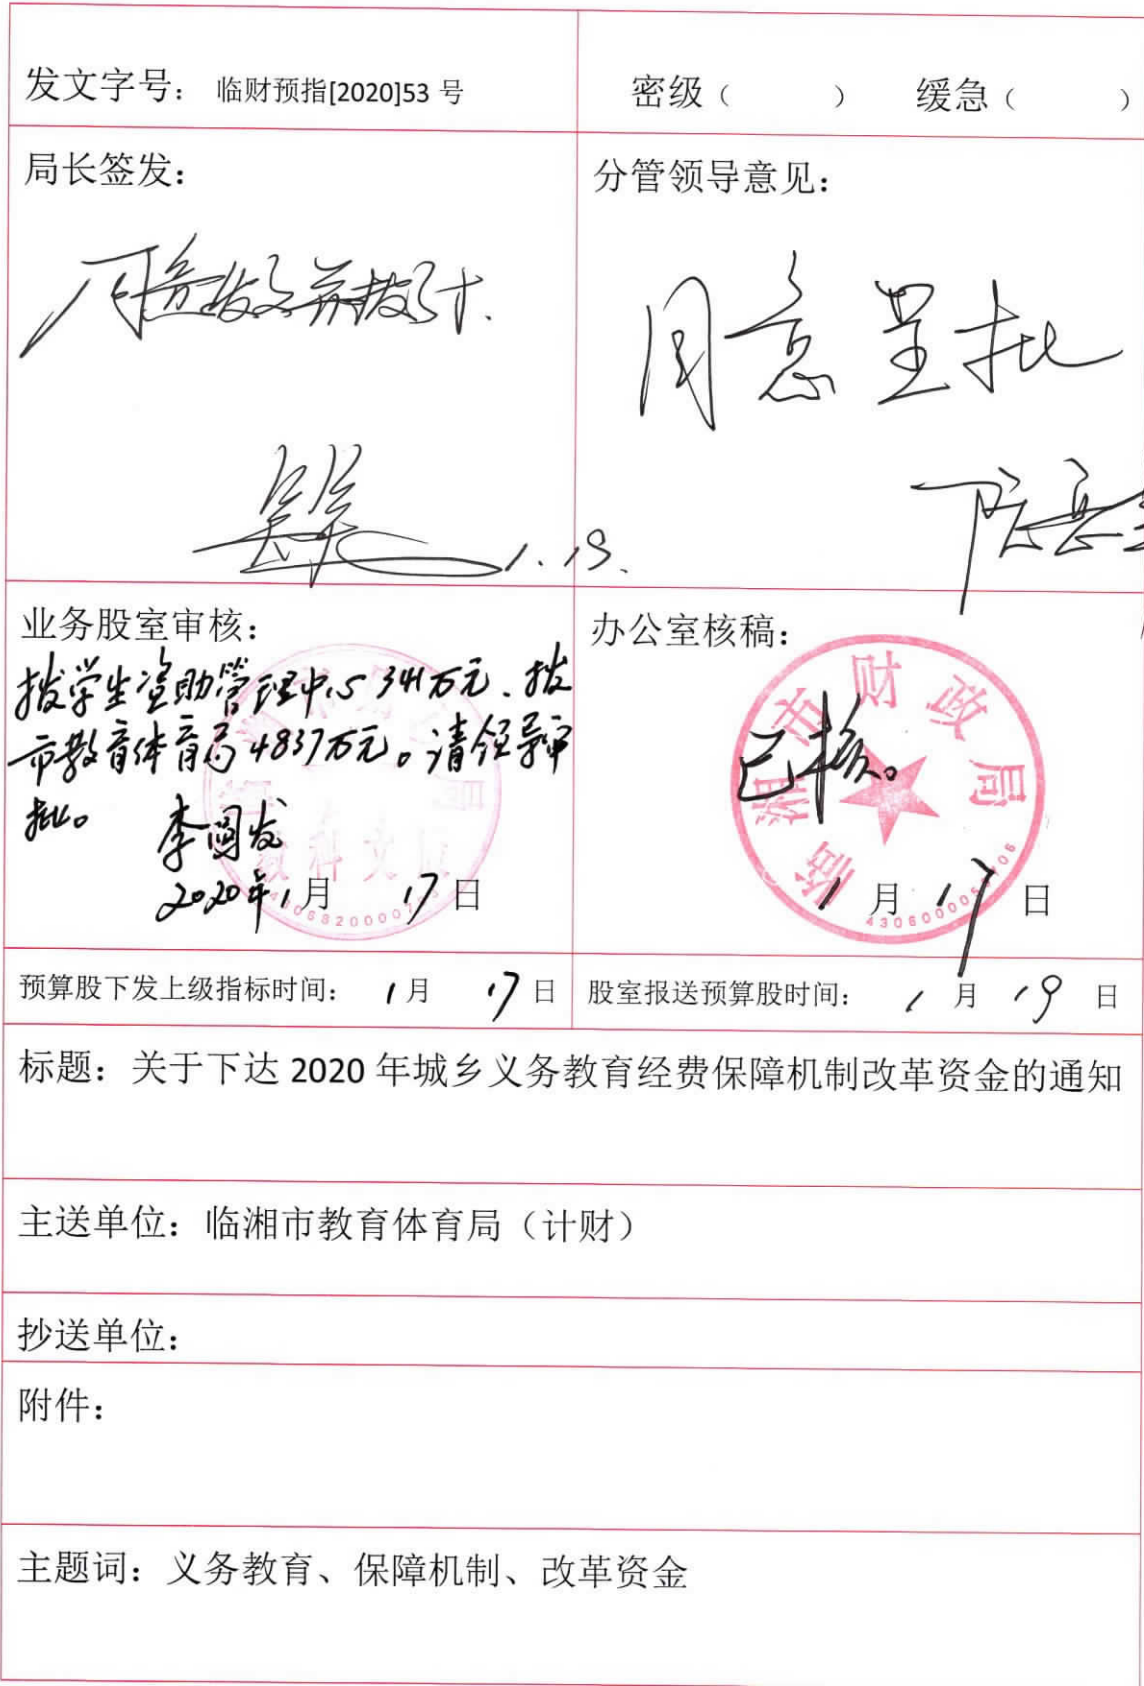 发文字号： 临财预指[2020]53 号
密级（ ） 缓急（ ）
局长签发：
同意发文并拨付.
1.19.
分管领导意见：
同意呈批
业务股室审核：
拨学生资助管理中心341万元、拨
市教育体育局4837万元。请领导审
批。
李国发
2020年1月 17日
教科文股
办公室核稿：
已核。
临湘市财政局
1月17日
预算股下发上级指标时间： 1月 17日
股室报送预算股时间： 1月19日
标题：关于下达 2020 年城乡义务教育经费保障机制改革资金的通知
主送单位：临湘市教育体育局（计财）
抄送单位：
附件：
主题词：义务教育、保障机制、改革资金